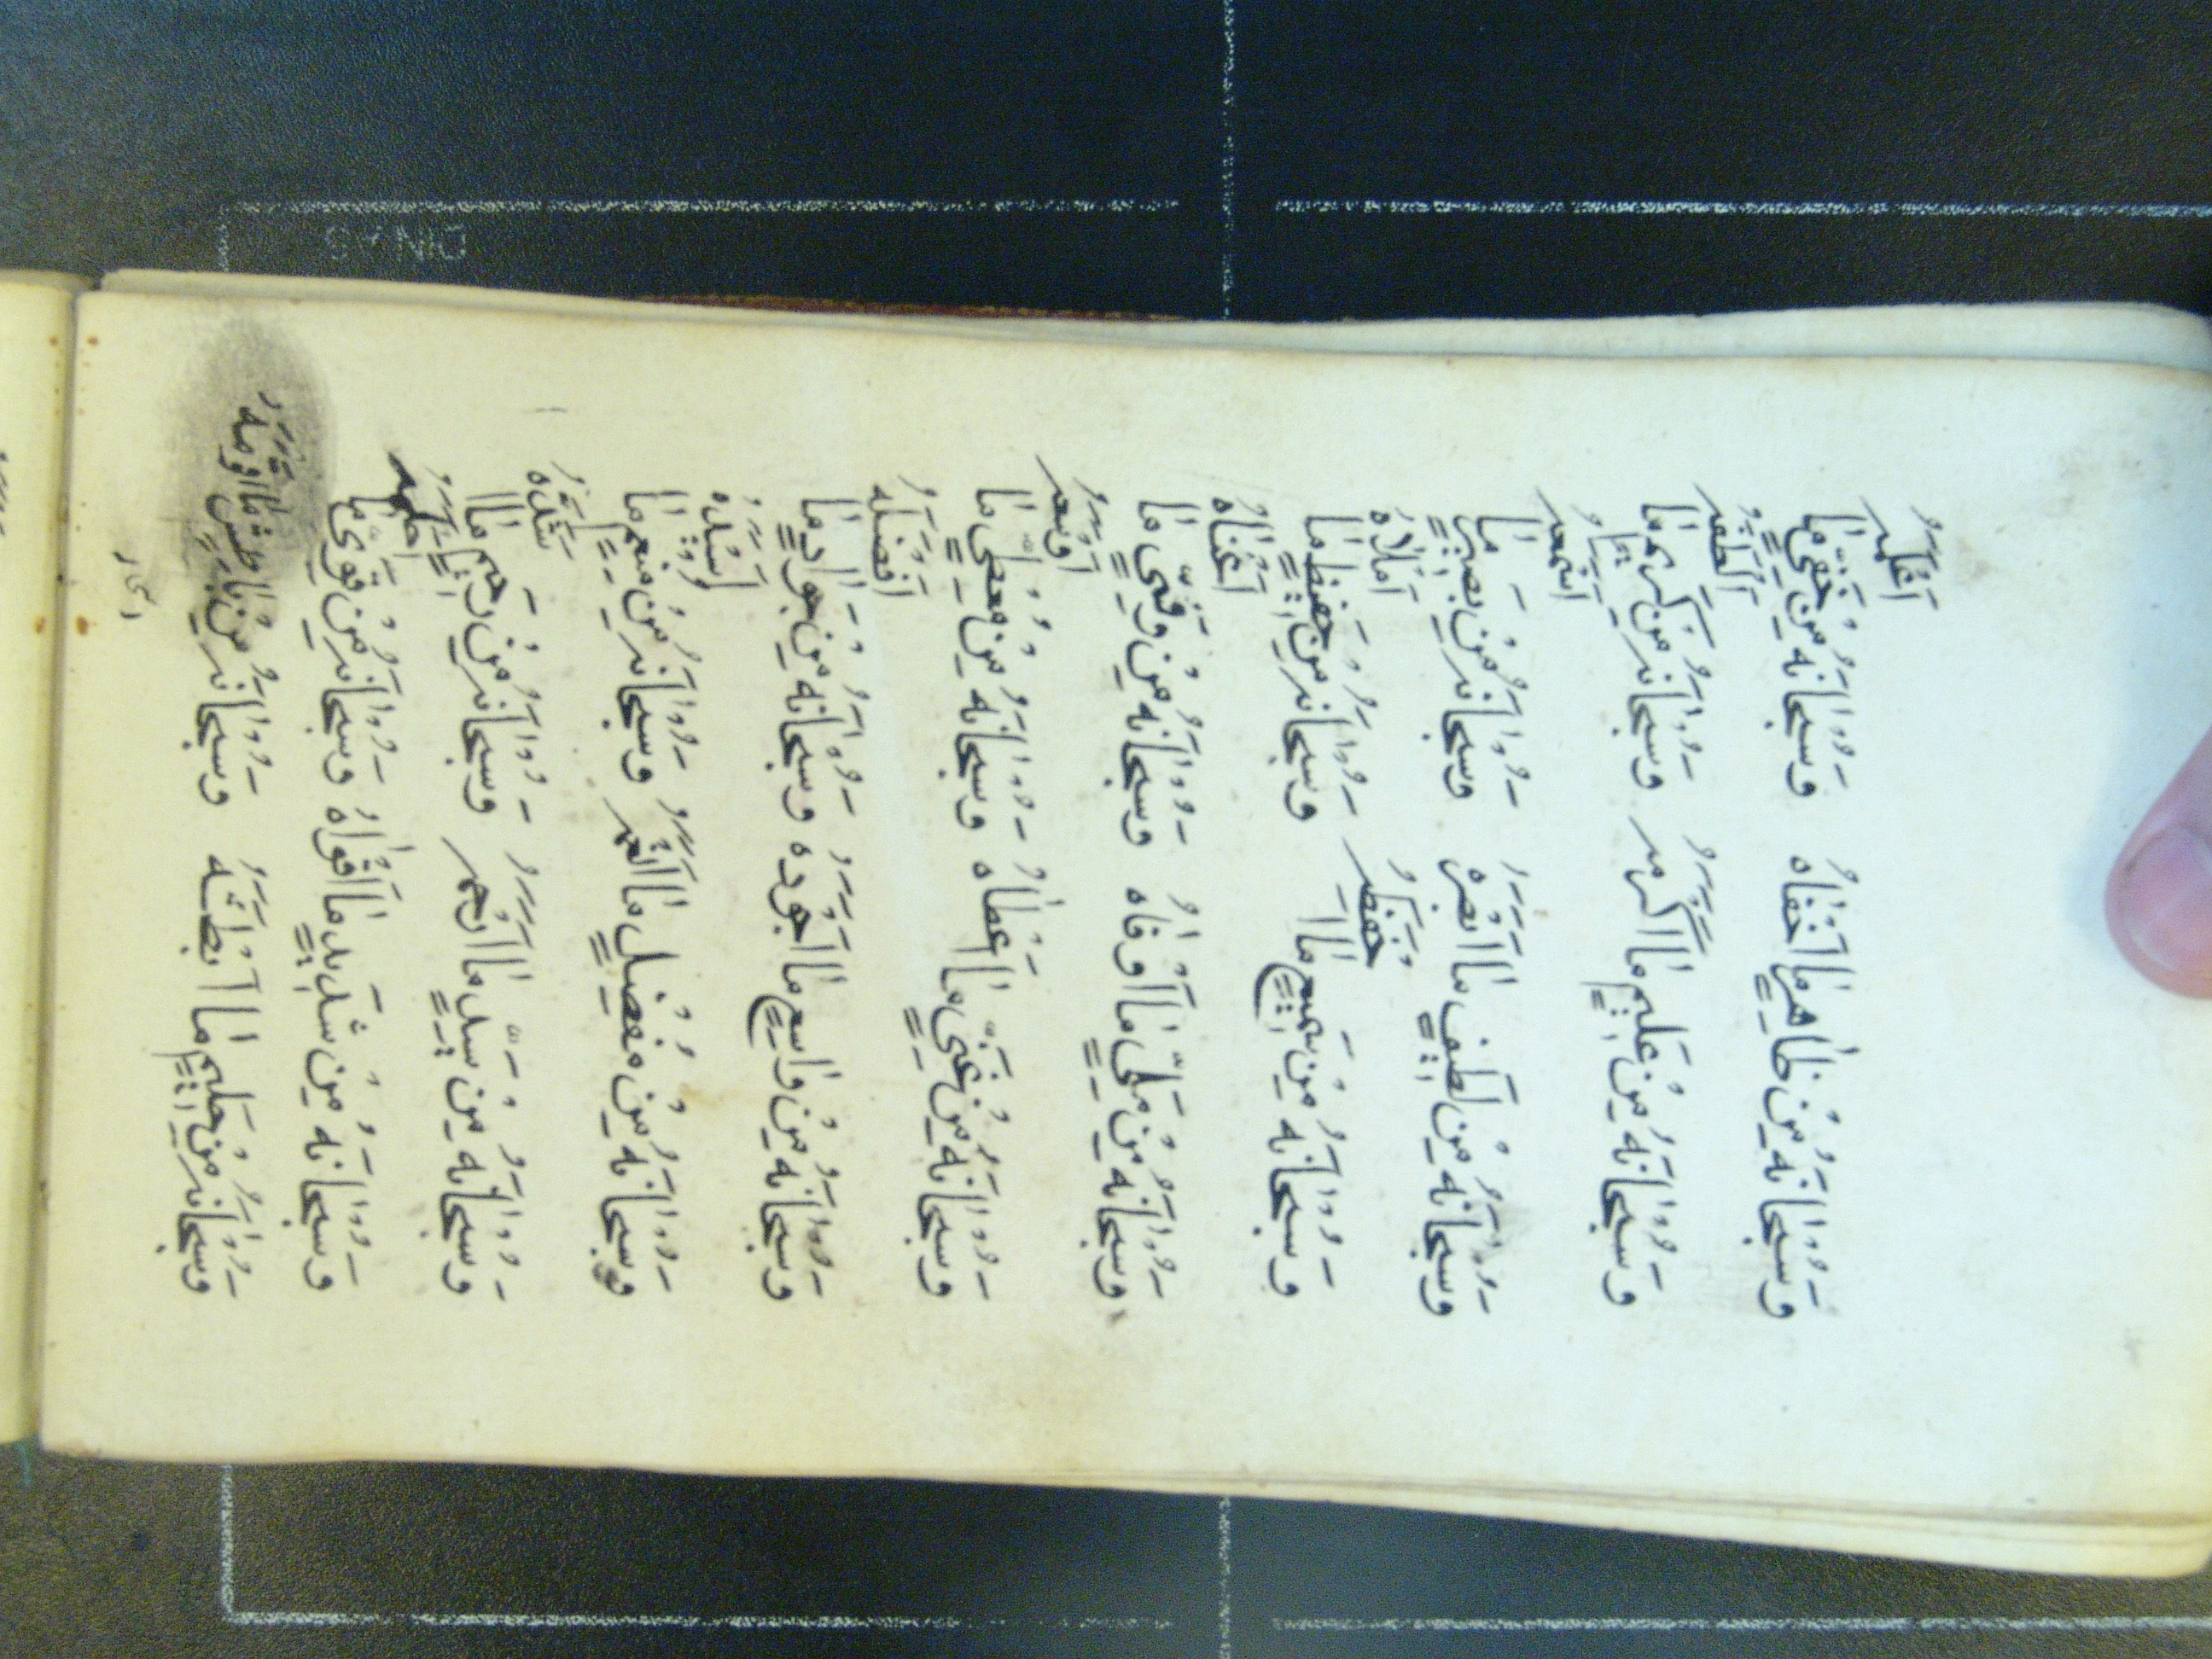 وَسُبْحَانَهُ مِنْ ظَاهِرٍ مَا اَخْفَاهُ وَسُبْحَانَهُ مِنْ خَفِيٍّ مَا اَعْلَمَهُ
وَسُبْحَانَهُ مِنْ عَلِيمٍ مَا اَكْرَمَهُ وَسُبْحَانَهُ مِنْ كَرِيمٍ مَا اَلْطَفَهُ
وَسُبْحَانَهُ مِنْ لَطِيفٍ مَا اَبْصَرَهُ وَسُبْحَانَهُ مِنْ بَصِيرٍ مَا اَسْمَعَهُ
وَسُبْحَانَهُ مِنْ سَمِيعٍ مَا اَحْفَظَهُ وَسُبْحَانَهُ مِنْ حَفِيظٍ مَا اَمْلَاهُ
وَسُبْحَانَهُ مِنْ مَلِيٍّ مَا اَوْفَاهُ وَسُبْحَانَهُ مِنْ وَفِيٍّ مَا اَغْنَاهُ
وَسُبْحَانَهُ مِنْ غَنِيٍّ مَا اَعْطَاهُ وَسُبْحَانَهُ مِنْ مُعْطِيٍ مَا اَوْسَعَهُ
وَسُبْحَانَهُ مِنْ وَاسِعٍ مَا اَجْوَدَهُ وَسُبْحَانَهُ مِنْ جَوَادٍ مَا اَفْضَلَهُ
وَسُبْحَانَهُ مِنْ مُفْضِلٍ مَا اَنْعَمَهُ وَسُبْحَانَهُ مِنْ مُنْعِمٍ مَا اَسْيَدَهُ
وَسُبْحَانَهُ مِنْ سَيِّدٍ مَا اَرْحَمَهُ وَسُبْحَانَهُ مِنْ رَحِيمٍ مَا اَشَدَّهُ
وَسُبْحَانَهُ مِنْ شَدِيدٍ مَا اَقْوَاهُ وَسُبْحَانَهُ مِنْ قَوِيٍّ مَا اَحْلَمَهُ
وَسُبْحَانَهُ مِنْ حَلِيمٍ مَا اَبْطَشَهُ وَسُبْحَانَهُ مِنْ بَاطِشٍ مَا اَقْوَمَهُ